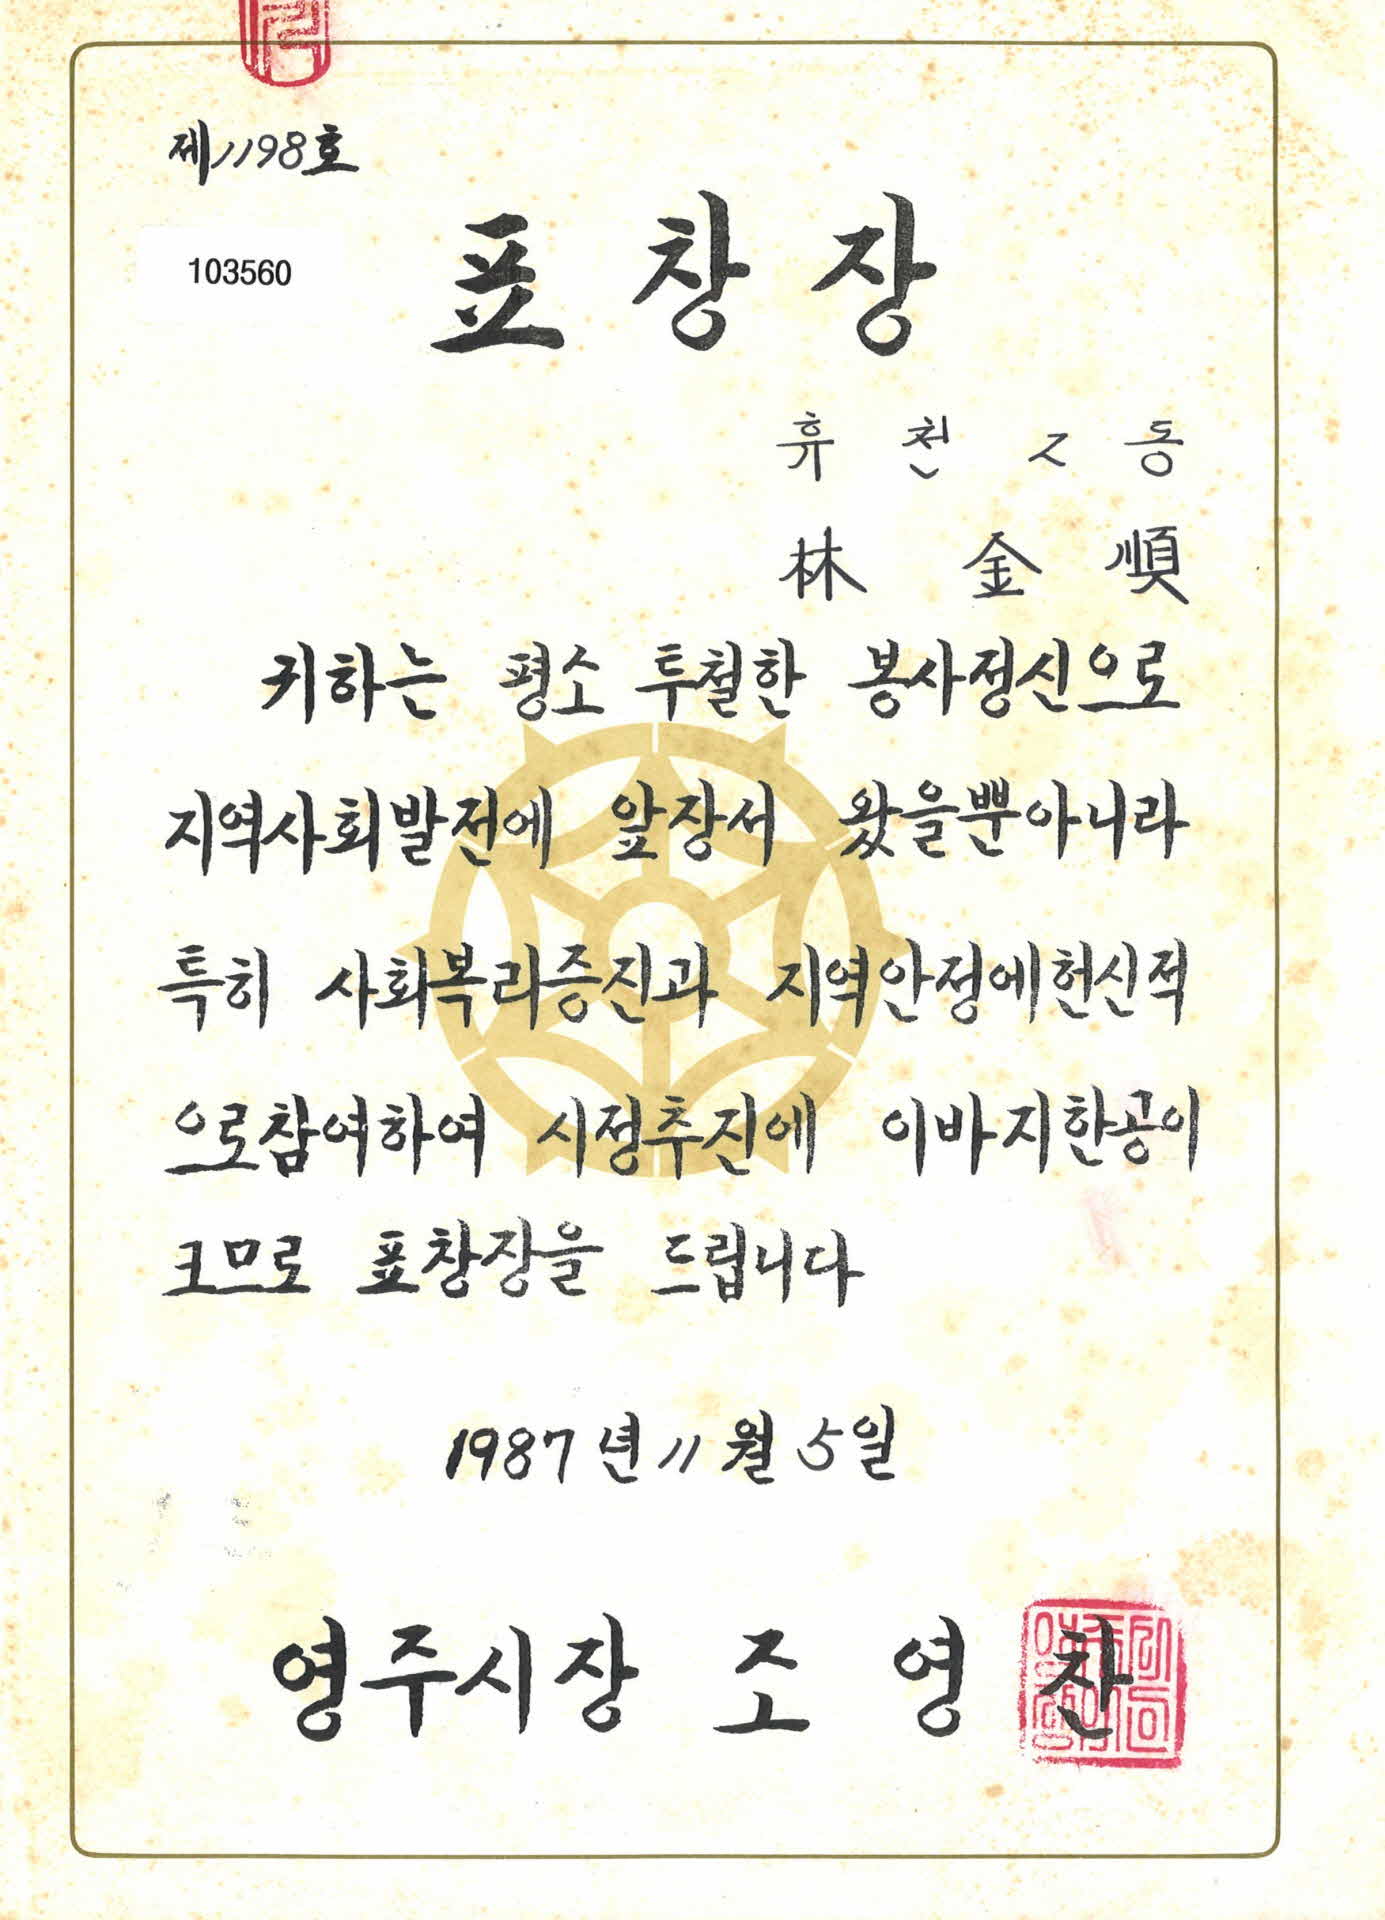 제1198호
103560
표창장
휴천2동
林金順
귀하는 평소 투철한 봉사정신으로
지역사회발전에 앞장서 왔을뿐아니라
특히 사회복리증진과 지역안정에헌신적
으로참여하여 시정추진에 이바지한공이
크므로 표창장을 드립니다
1987년 11월 5일
영주시장 조영찬